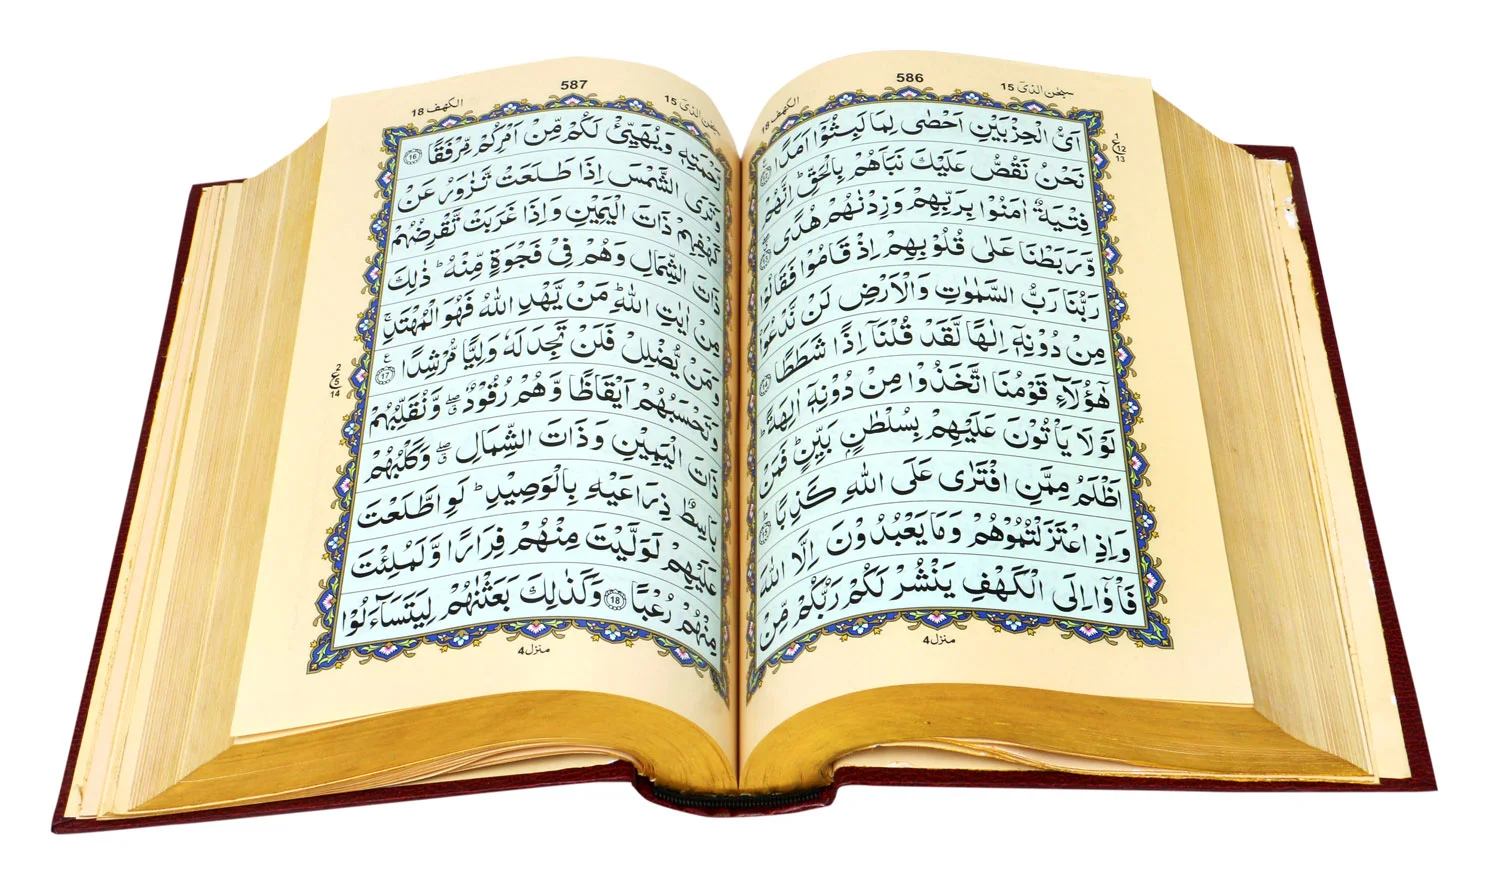 سبحٰن الذی ١٥
586
الكهف 18
اَيُّ الْحِزْبَيْنِ اَحْصٰى لِمَا لَبِثُوْٓا اَمَدًا
نَحْنُ نَقُصُّ عَلَيْكَ نَبَاَهُمْ بِالْحَقِّ ؕ اِنَّهُمْ
فِتْيَةٌ اٰمَنُوْا بِرَبِّهِمْ وَزِدْنٰهُمْ هُدًى
وَّرَبَطْنَا عَلٰى قُلُوْبِهِمْ اِذْ قَامُوْا فَقَالُوْا
رَبُّنَا رَبُّ السَّمٰوٰتِ وَالْاَرْضِ لَنْ نَّدْعُوَا۟
مِنْ دُوْنِهٖٓ اِلٰهًا لَّقَدْ قُلْنَآ اِذًا شَطَطًا
هٰٓؤُلَآءِ قَوْمُنَا اتَّخَذُوْا مِنْ دُوْنِهٖٓ اٰلِهَةً ؕ
لَوْلَا يَاْتُوْنَ عَلَيْهِمْ بِسُلْطٰنٍۭ بَيِّنٍ ؕ فَمَنْ
اَظْلَمُ مِمَّنِ افْتَرٰى عَلَى اللّٰهِ كَذِبًا
وَاِذِ اعْتَزَلْتُمُوْهُمْ وَمَا يَعْبُدُوْنَ اِلَّا اللّٰهَ
فَاْوٗٓا اِلَى الْكَهْفِ يَنْشُرْ لَكُمْ رَبُّكُمْ مِّنْ
منزل 4
1
ع 12
13
سبحٰن الذی 15
587
الكهف 18
رَّحْمَتِهٖ وَيُهَيِّئْ لَكُمْ مِّنْ اَمْرِكُمْ مِّرْفَقًا 16
وَتَرَى الشَّمْسَ اِذَا طَلَعَتْ تَّزٰوَرُ عَنْ
كَهْفِهِمْ ذَاتَ الْيَمِيْنِ وَاِذَا غَرَبَتْ تَّقْرِضُهُمْ
ذَاتَ الشِّمَالِ وَهُمْ فِيْ فَجْوَةٍ مِّنْهُ ؕ ذٰلِكَ
مِنْ اٰيٰتِ اللّٰهِ ؕ مَنْ يَّهْدِ اللّٰهُ فَهُوَ الْمُهْتَدِ ۚ
وَمَنْ يُّضْلِلْ فَلَنْ تَجِدَ لَهٗ وَلِيًّا مُّرْشِدًا 17 ع
وَتَحْسَبُهُمْ اَيْقَاظًا وَّهُمْ رُقُوْدٌ ۖ ق وَّنُقَلِّبُهُمْ
ذَاتَ الْيَمِيْنِ وَذَاتَ الشِّمَالِ ۖ ق وَكَلْبُهُمْ
بَاسِطٌ ذِرَاعَيْهِ بِالْوَصِيْدِ ؕ لَوِ اطَّلَعْتَ
عَلَيْهِمْ لَوَلَّيْتَ مِنْهُمْ فِرَارًا وَّلَمُلِئْتَ
مِنْهُمْ رُعْبًا 18 وَكَذٰلِكَ بَعَثْنٰهُمْ لِيَتَسَآءَلُوْا
منزل 4
2
ع 5
14